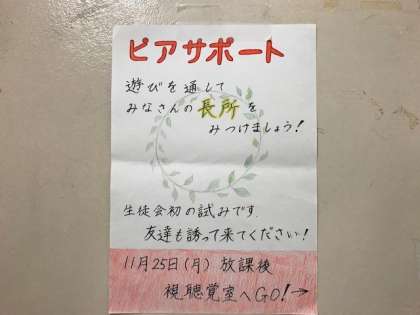 ピアサポート
遊びを通して
みなさんの長所を
みつけましょう!
生徒会初の試みです.
友達も誘って来てください!
11月25日(月) 放課後
視聴覚室へGO!→